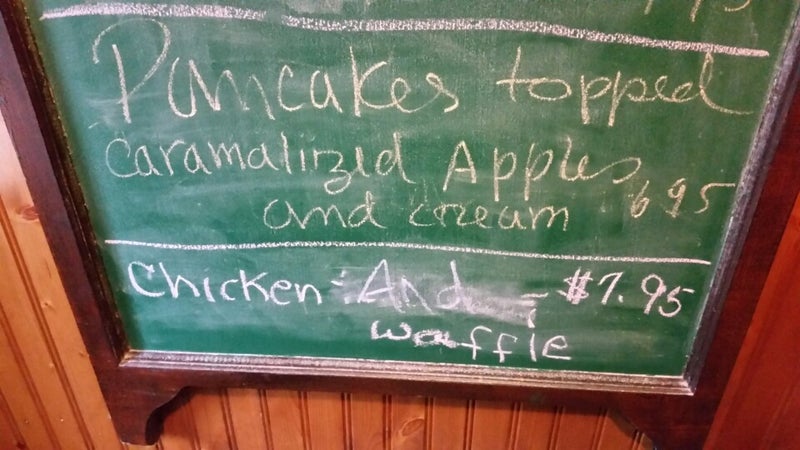 Pancakes topped
caramalizid Apples
and cream 695
Chicken And $7.95
waffie